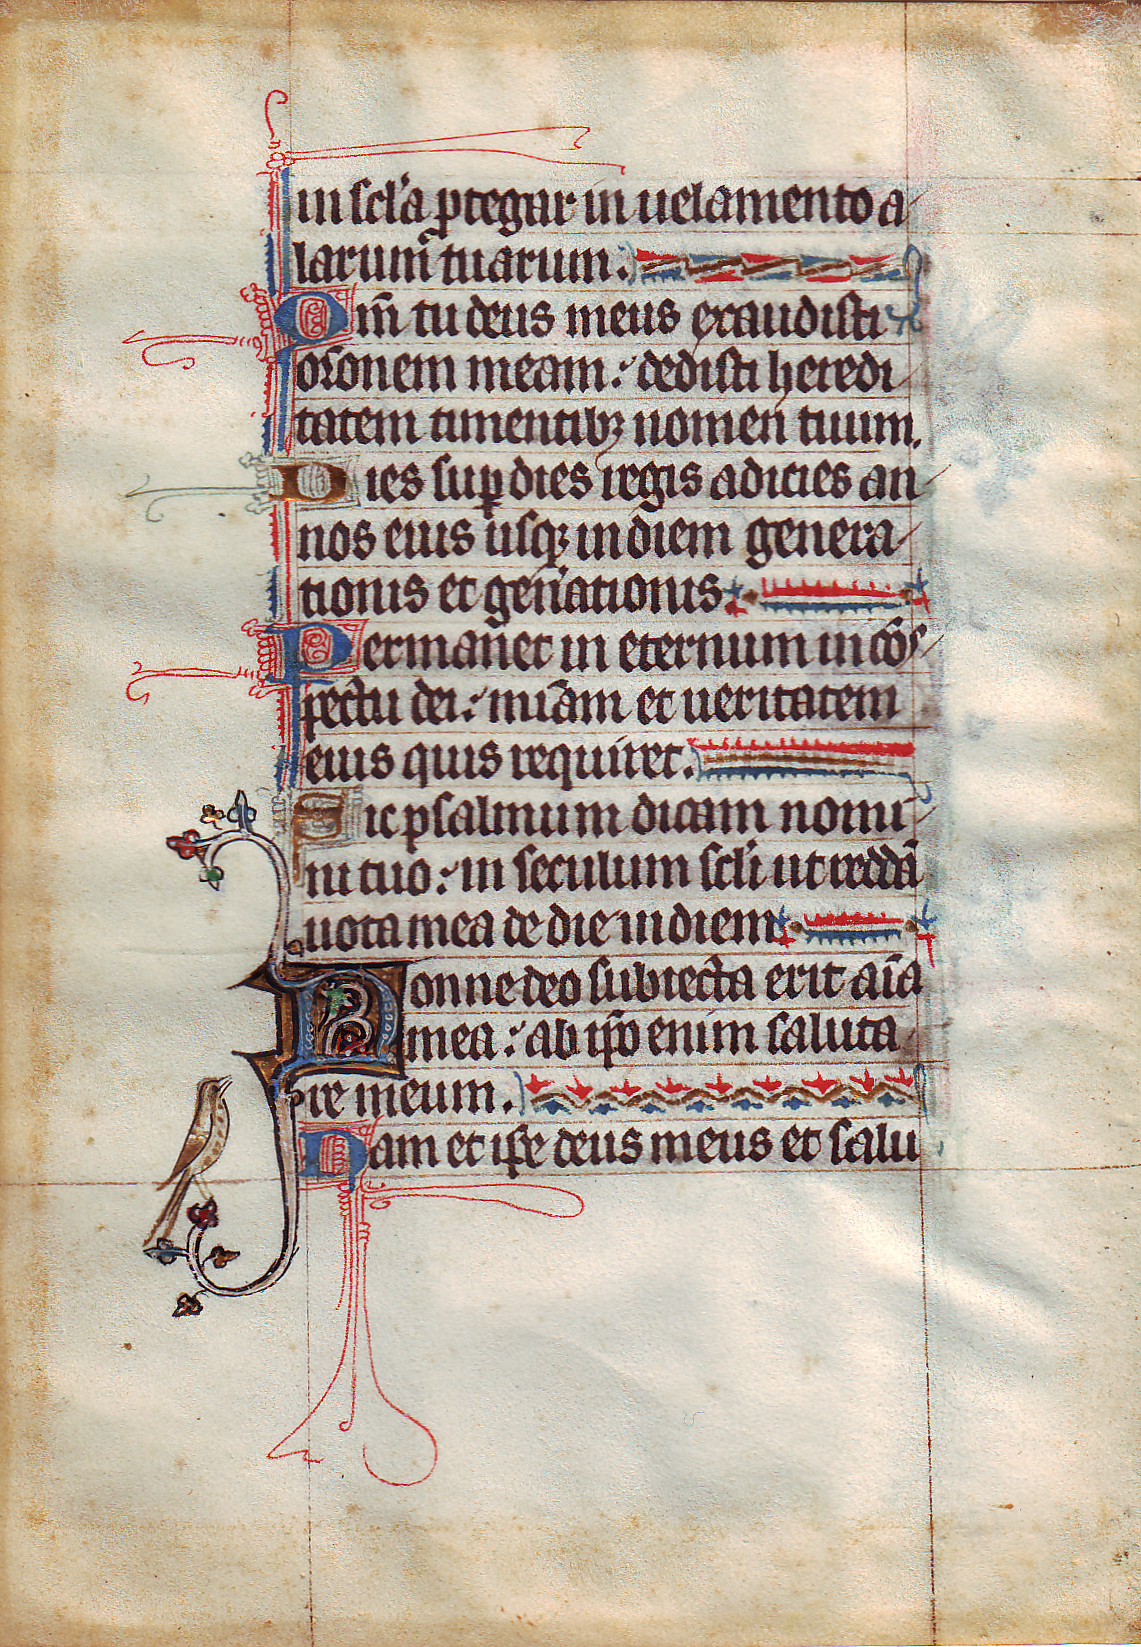 in scl̄a ꝓtegar in uelamento a
larum tuarum.
Om̄ tu deus meus exaudisti
or̄onem meam: dedisti heredi
tatem timentibꝫ nomen tuum.
Dies suꝑ dies regis adicies an
nos eius usqꝫ in diem genera
tionis et gen̄ationis.
Permanet in eternum in cōs
pectu dei: mīam et ueritatem
eius quis requiret.
Sic psalmum dicam nomi
ni tuo: in seculum scl̄i ut reddā
uota mea de die in diem.
Nonne deo subiecta erit aīa
mea: ab ip̄o enim saluta
re meum.
Nam et ip̄e deus meus et salu